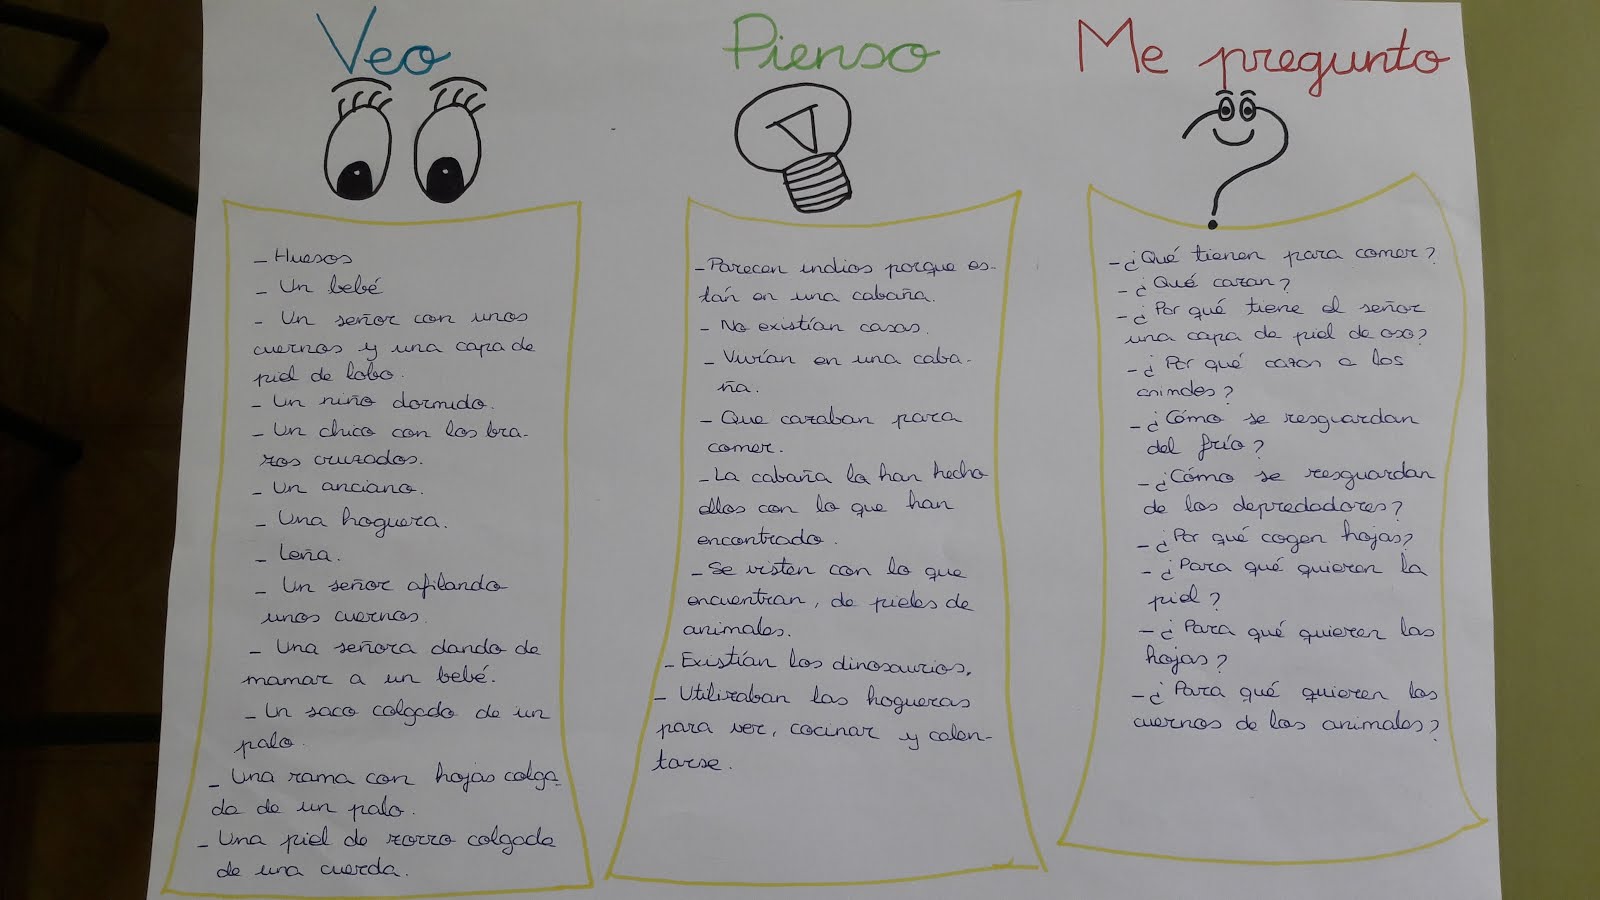 Veo
- Huesos
- Un bebé
- Un señor con unos
cuernos y una capa de
piel de lobo.
- Un niño dormido.
- Un chico con los bra-
zos cruzados.
- Un anciano.
- Una hoguera.
- Leña.
- Un señor afilando
unos cuernos.
- Una señora dando de
mamar a un bebé.
- Un saco colgado de un
palo.
- Una rama con hojas colga-
da de un palo.
- Una piel de zorro colgada
de una cuerda.
Pienso
- Parecen indios porque es-
tán en una cabaña.
- No existían casas.
- Vivían en una caba-
ña.
- Que cazaban para
comer.
- La cabaña la han hecho
ellos con lo que han
encontrado.
- Se visten con lo que
encuentran, de pieles de
animales.
- Existían los dinosaurios.
- Utilizaban las hogueras
para ver, cocinar y calen-
tarse.
Me pregunto
- ¿Qué tienen para comer?
- ¿Qué cazan?
- ¿Por qué tiene el señor
una capa de piel de oso?
- ¿Por qué cazan a los
animales?
- ¿Cómo se resguardan
del frío?
- ¿Cómo se resguardan
de los depredadores?
- ¿Por qué cogen hojas?
- ¿Para qué quieren la
piel?
- ¿Para qué quieren las
hojas?
- ¿Para qué quieren los
cuernos de los animales?